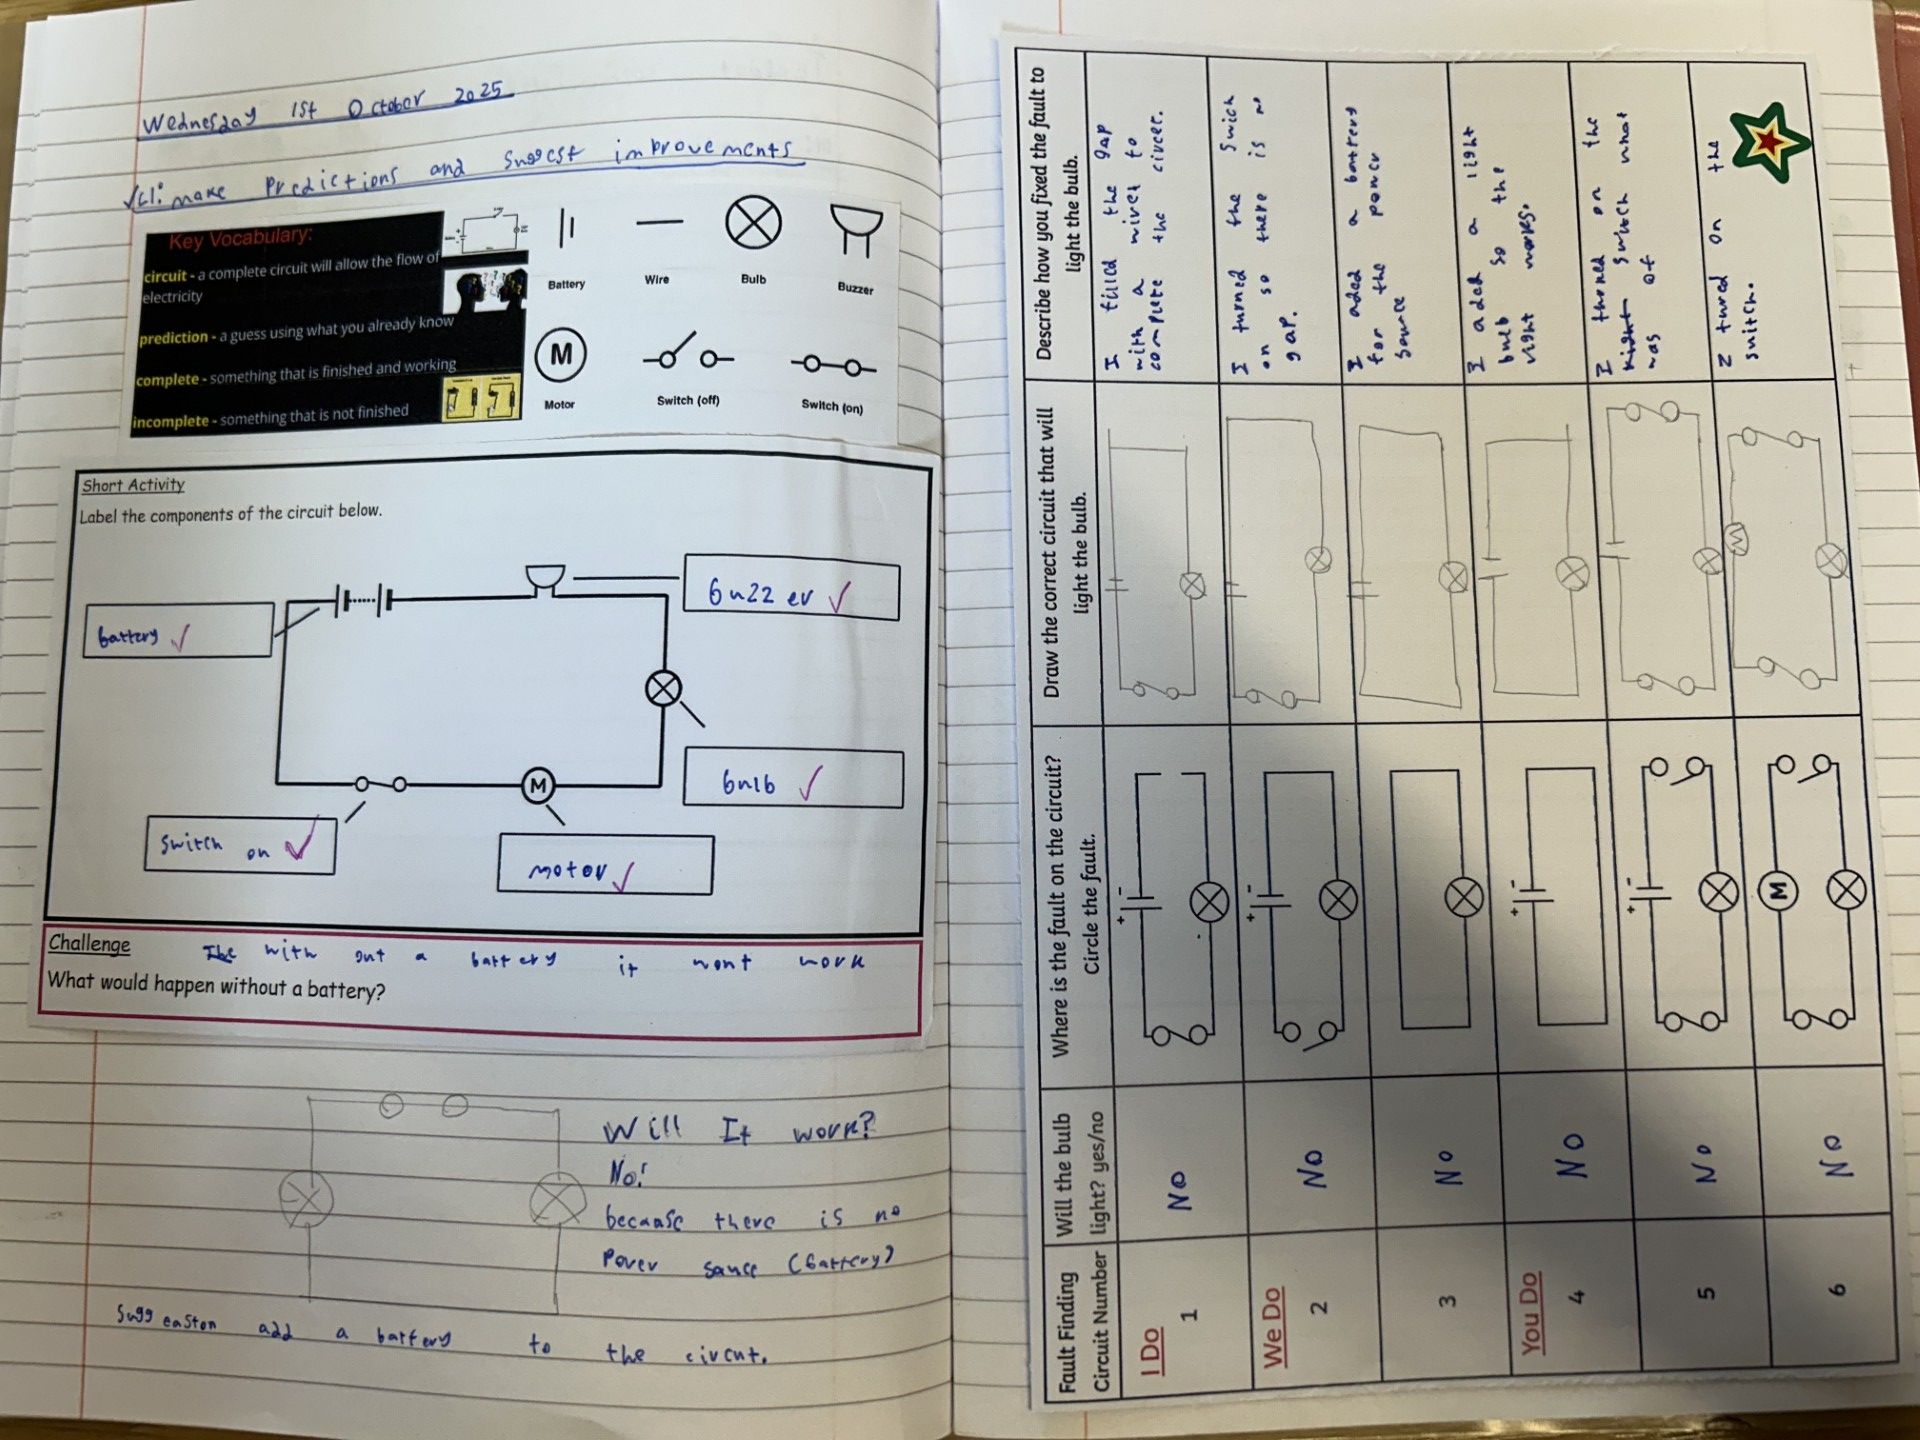 Wednesday 1st October 2025
LI: make Predictions and suggest improvements
Key Vocabulary:
circuit - a complete circuit will allow the flow of
electricity
prediction - a guess using what you already know
complete - something that is finished and working
incomplete - something that is not finished
Battery
Wire
Bulb
Buzzer
M
Motor
Switch (off)
Switch (on)
Short Activity
Label the components of the circuit below.
battery
buzzer
bulb
switch on
M
motor
Challenge
The with out a battery it wont work
What would happen without a battery?
Will It work?
No!
because there is no
Power sauce (battery)
Suggeaston add a battery to the circut.
Fault Finding
Circuit Number
Will the bulb
light? yes/no
Where is the fault on the circuit?
Circle the fault.
Draw the correct circuit that will
light the bulb.
Describe how you fixed the fault to
light the bulb.
I Do
1
No
+ -
I filled the gap
with a wire to
complete the circet.
We Do
2
No
+ -
I turned the Swich
on so there is no
gap.
3
No
I aded a battery
for the power
source
You Do
4
No
+ -
I aded a light
bulb so the
light works.
5
No
+ -
I thrned on the
switch what
was of
6
No
M
M
I tured on the
switch.